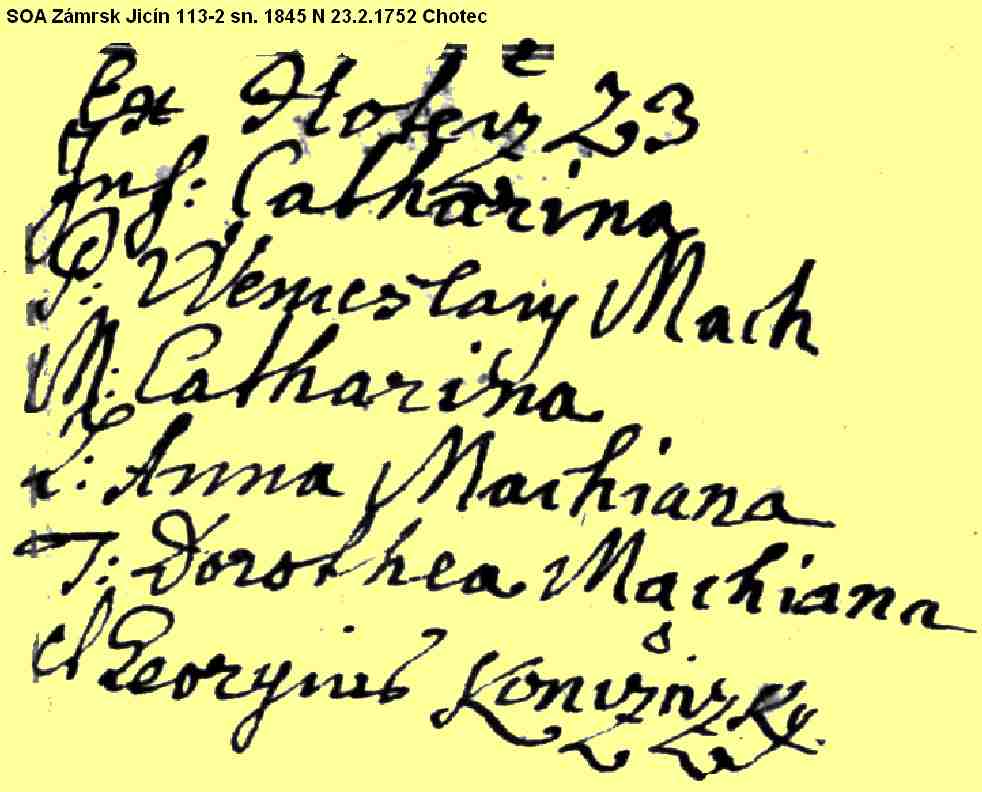 SOA Zámrsk Jicín 113-2 sn. 1845 N 23.2.1752 Chotec
Ex 23
Inf: Catharina
P: Wenceslaus Mach
M: Catharina
L: Anna Machiana
T: Dorothea Machiana
et Georgius